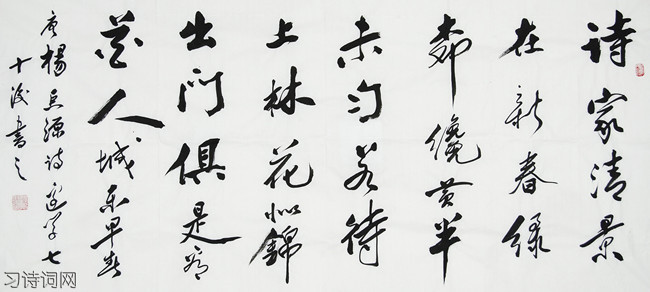 诗家清景
在新春绿
柳纔黄半
未匀若待
上林花似錦
出门俱是看
花人城东早春
唐楊巨源诗七
十波書之
习诗词网